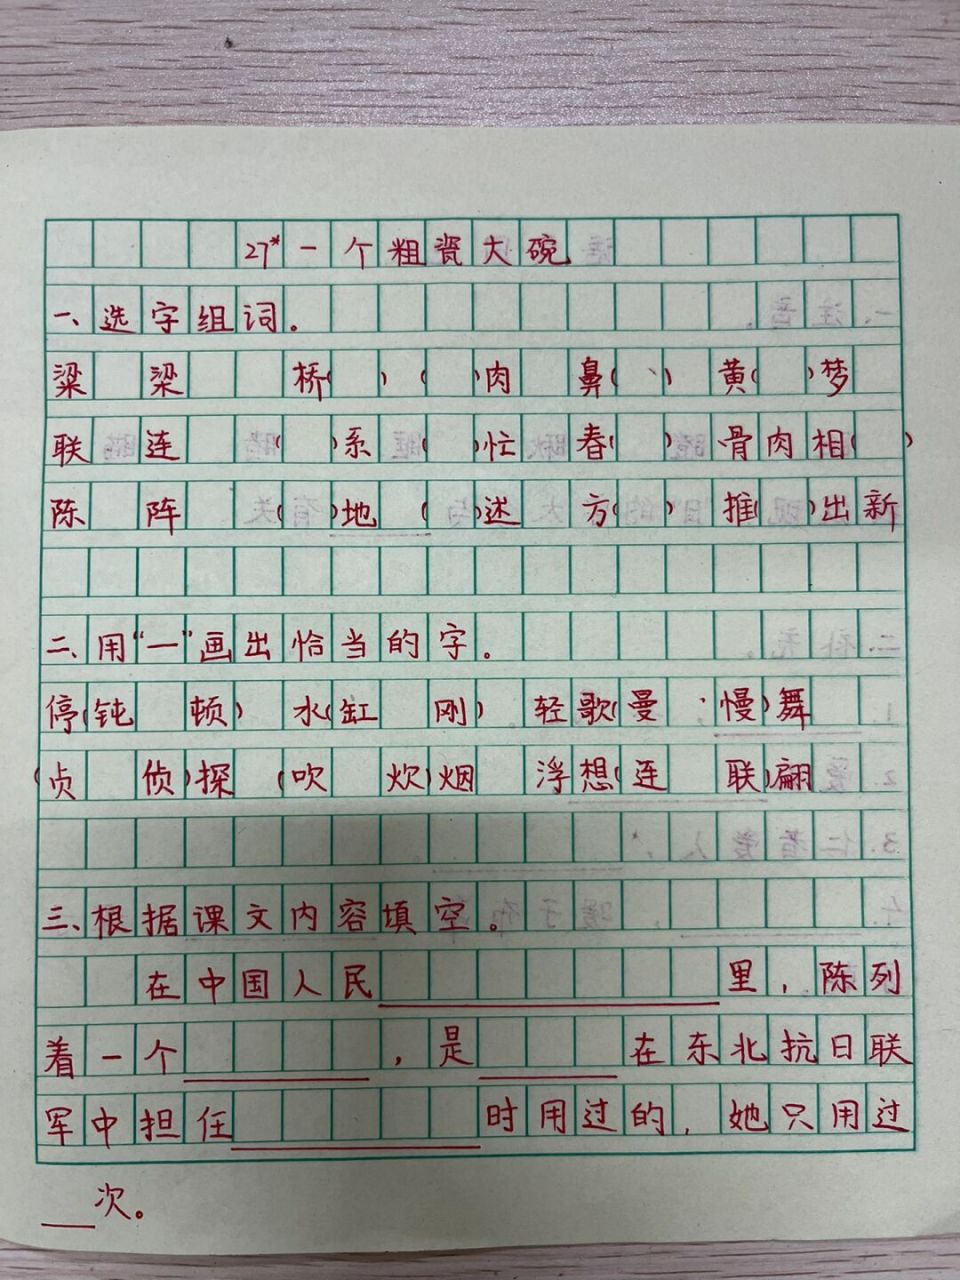 27* 一个粗瓷大碗
一、选字组词。
粱 梁 桥( ) ( )肉 鼻( ) 黄( )梦
联 连 ( )系 ( )忙 春( ) 骨肉相( )
陈 阵 ( )地 ( )述 方( ) 推( )出新
二、用“一”画出恰当的字。
停(钝 顿) 水(缸 刚) 轻歌(曼 慢)舞
(贞 侦)探 (吹 炊)烟 浮想(连 联)翩
三、根据课文内容填空。
在中国人民 里，陈列
着一个 ，是 在东北抗日联
军中担任 时用过的，她只用过
次。